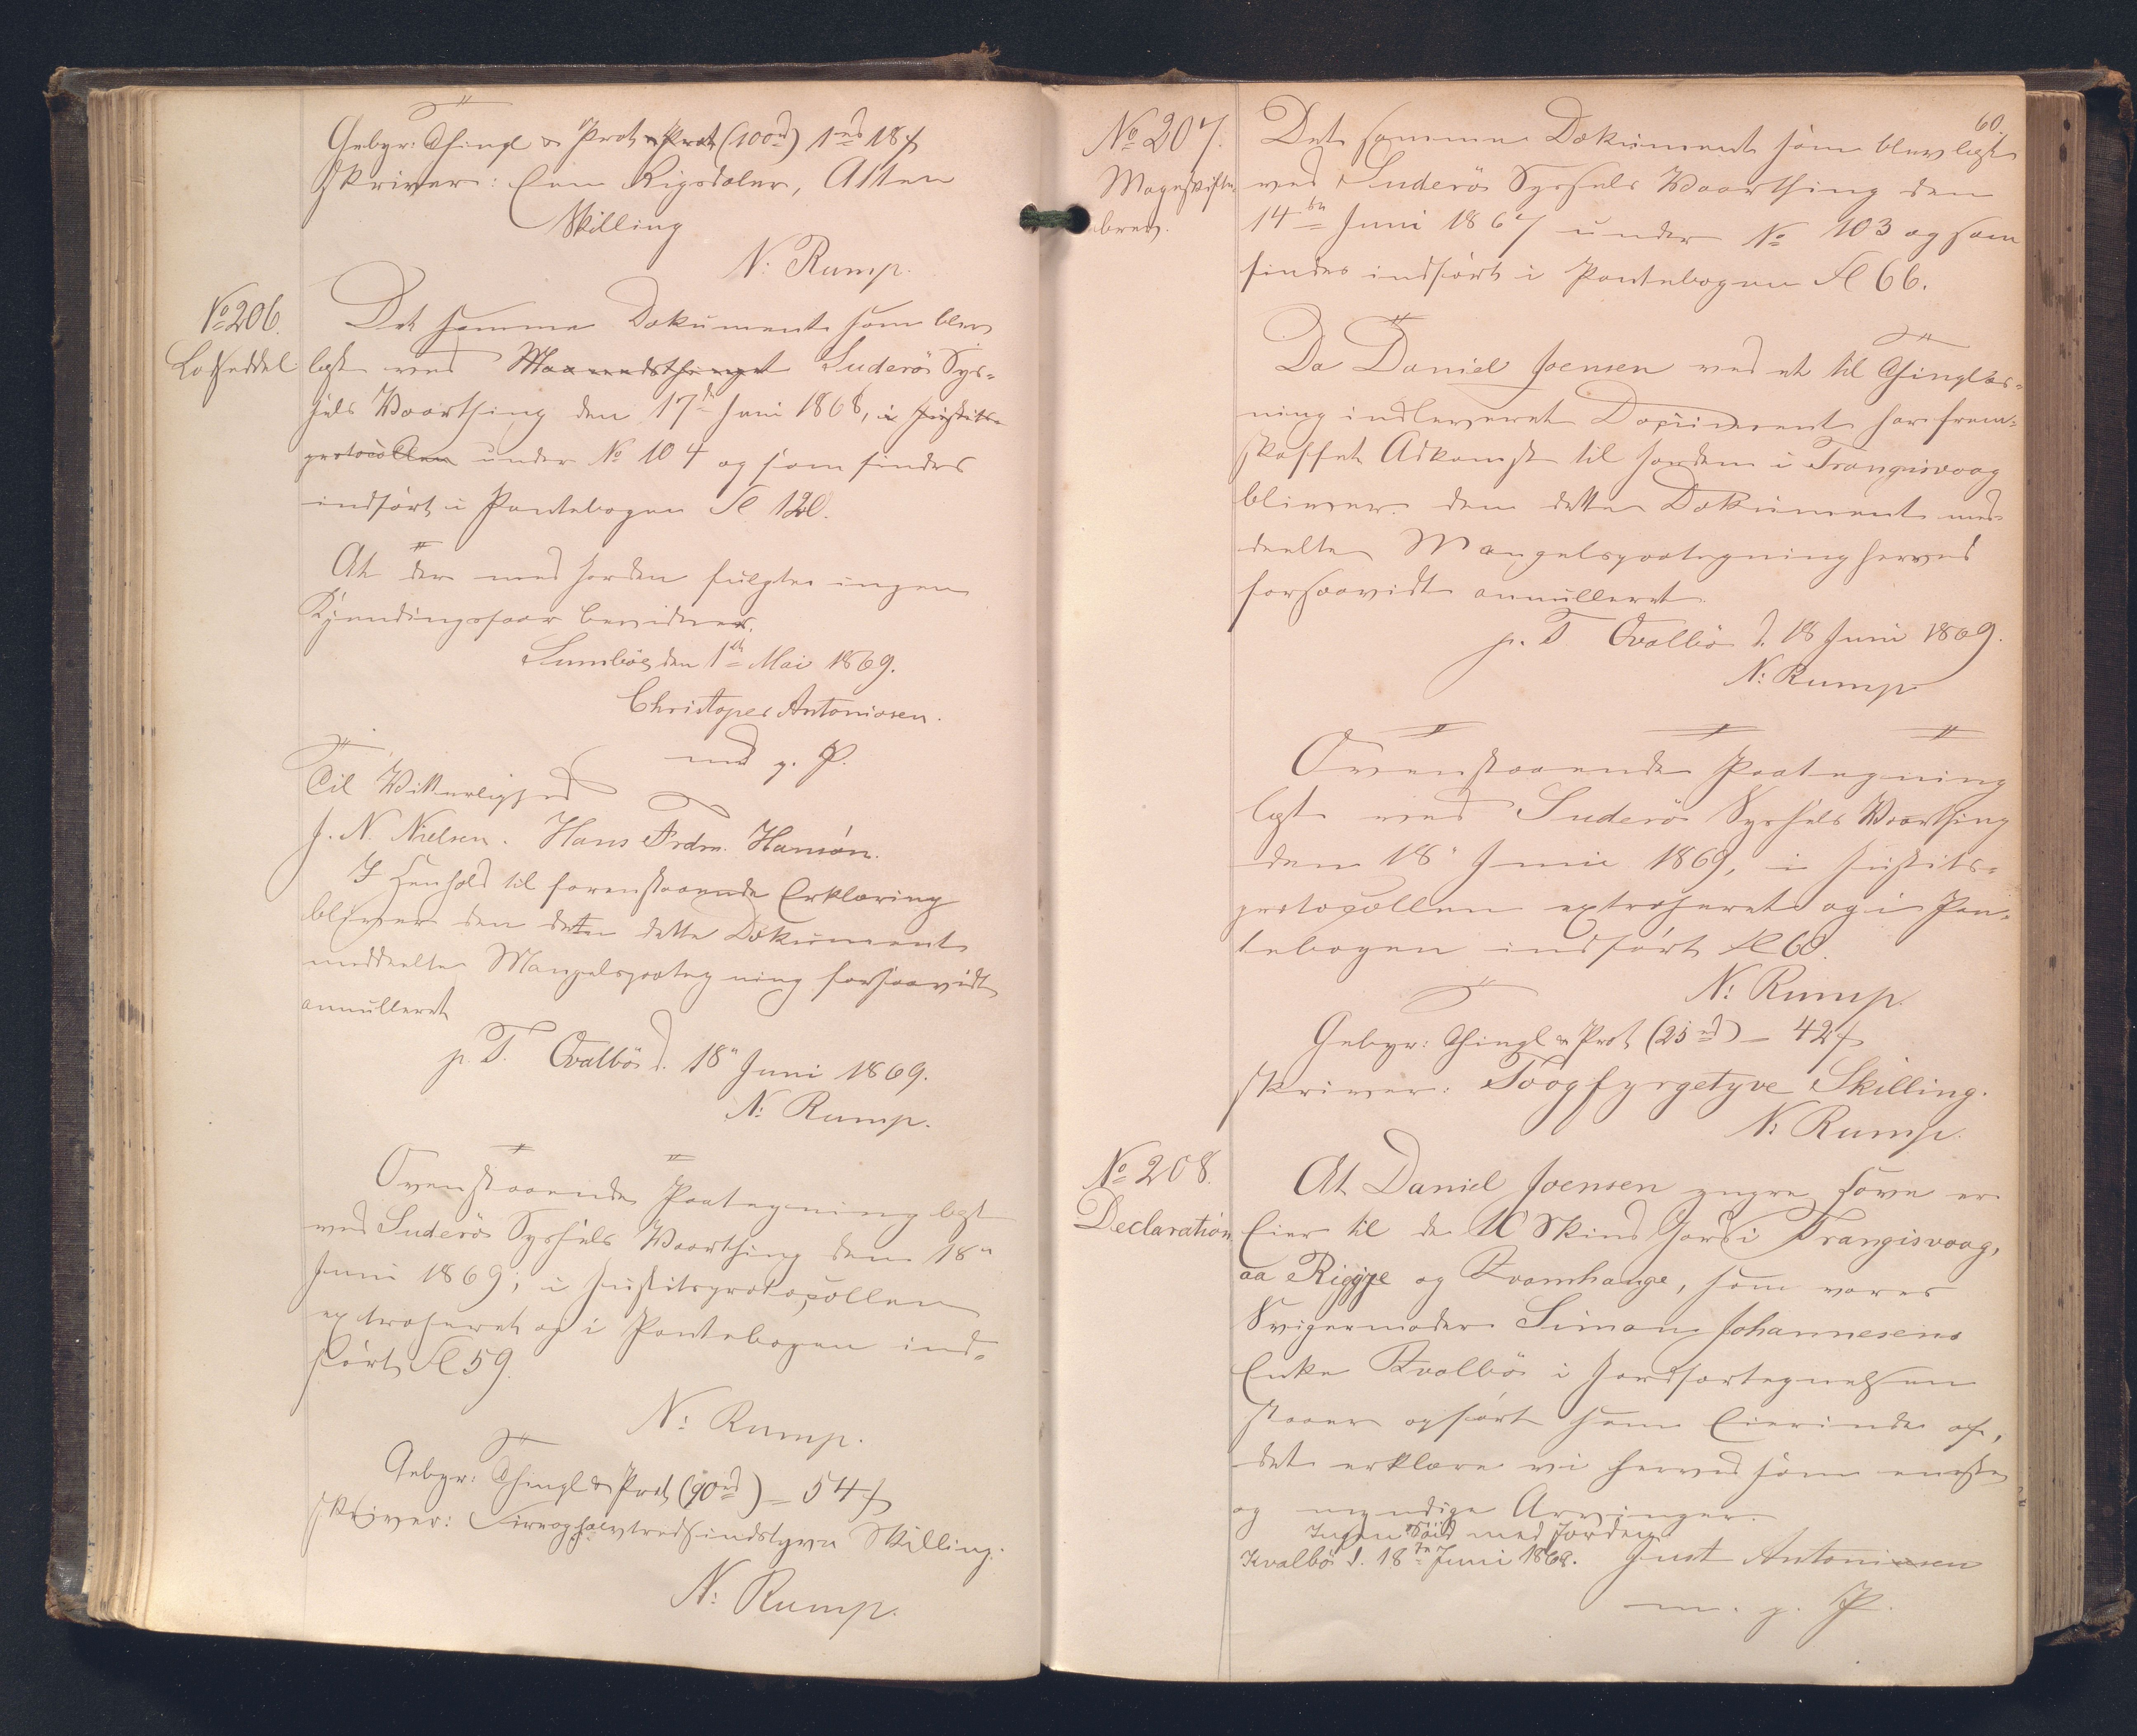 Gebyr: Thingl & Prot & Prot (100rd) 1rd 18 s
skriver: Een Rigsdaler, Atten
Skilling
N: Rump.
No 206.
Lodseddel
Det samme Dokument som blev
læst ved Maanedsthinget Suderø Sys-
sels Vaarthing den 17de Juni 1868, i Justits-
protocollen under No 104 og som findes
indført i Pantebogen Fl 120.
At der med Jorden fulgte ingen
Kjendingsfaar bevidnes.
Sumbø, den 1ste Mai 1869.
Christoper Antoniosen.
med p. P.
Til Vitterlighed
J. N. Nielsen. Hans Frdm. Hansón.
I Henhold til foranstaaende Erklæring
bliver den detn dette Dokument
meddeelte Mangelspaategning forsaavidt
annulleret
p. T. Qvalbø d. 18n Juni 1869.
N: Rump.
Ovenstaaende Paategning læst
ved Suderø Syssels Vaarthing den 18n
Juni 1869; i Justitsprotocollen
extraheret og i Pantebogen ind-
ført Fl 59.
N: Rump.
Gebyr: Thingl & Prot (90rd) – 54 s
skriver: Fireoghalvtredsindstyve Skilling.
N: Rump.
60.
No 207.
Mageskifte
brev.
Det samme Dokument som blev læst
ved Suderø Syssels Vaarthing den
14de Juni 1867 under No 103 og som
findes indført i Pantebogen Fl 66.
Da Daniel Joensen ved et til Thinglæs-
ning indleveret Document har frem-
skaffet Adkomst til Jorden i Trangisvaag
bliver den dette Dokument med-
deelte Mangelspaategning herved
forsaavidt annulleret.
p. T Qvalbø d. 18 Juni 1869.
N: Rump
Ovenstaaende Paategning
læst ved Suderø Syssels Vaarthing
den 18n Juni 1869, i Justits-
protocollen extraheret og i Pan-
tebogen indført Fl 60.
N: Rump.
Gebyr: Thingl & Prot (25rd) – 42 s
skriver: Toogfyrgetyve Skilling.
N: Rump.
No 208.
Declaration
At Daniel Joensen yngre, Høve er
Eier til de 10 Skind Jord i Trangisvaag,
aa Riggje og Kvamhauge, som vores
Svigermoder Simon Johannesens
Enke Kvalbø i Jordfortegnelsen
staaer opført som Eierinde af,
det erklære vi herved som eneste
og myndige Arvinger.
Ingen Søid med Jorden
Kvalbø d. 18de Juni 1868. Just Antoniosen
m. p. P.